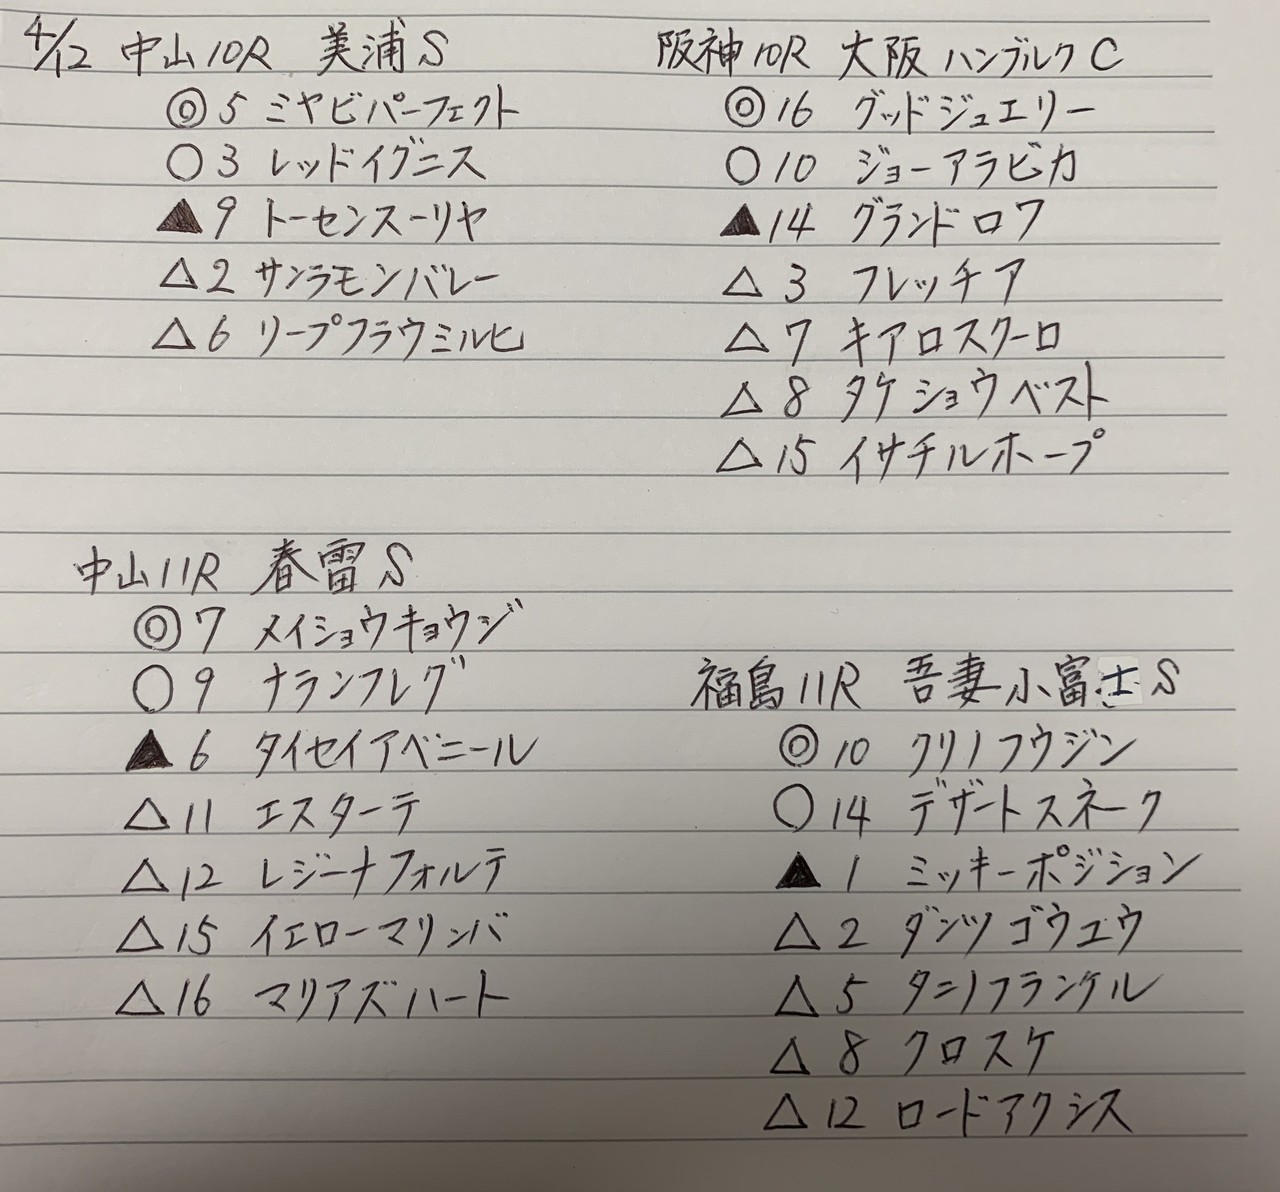 4/12 中山10R 美浦S
◎5 ミヤビパーフェクト
○3 レッドイグニス
▲9 トーセンスーリヤ
△2 サンラモンバレー
△6 リープフラウミルヒ
阪神10R 大阪ハンブルクC
◎16 グッドジュエリー
○10 ジョーアラビカ
▲14 グランドロワ
△3 フレッチア
△7 キアロスクーロ
△8 タケショウベスト
△15 イサチルホープ
中山11R 春雷S
◎7 メイショウキョウジ
○9 ナランフレグ
▲6 タイセイアベニール
△11 エスターテ
△12 レジーナフォルテ
△15 イエローマリンバ
△16 マリアズハート
福島11R 吾妻小富士S
◎10 クリノフウジン
○14 デザートスネーク
▲1 ミッキーポジション
△2 ダンツゴウユウ
△5 タニノフランケル
△8 クロスケ
△12 ロードアクシス